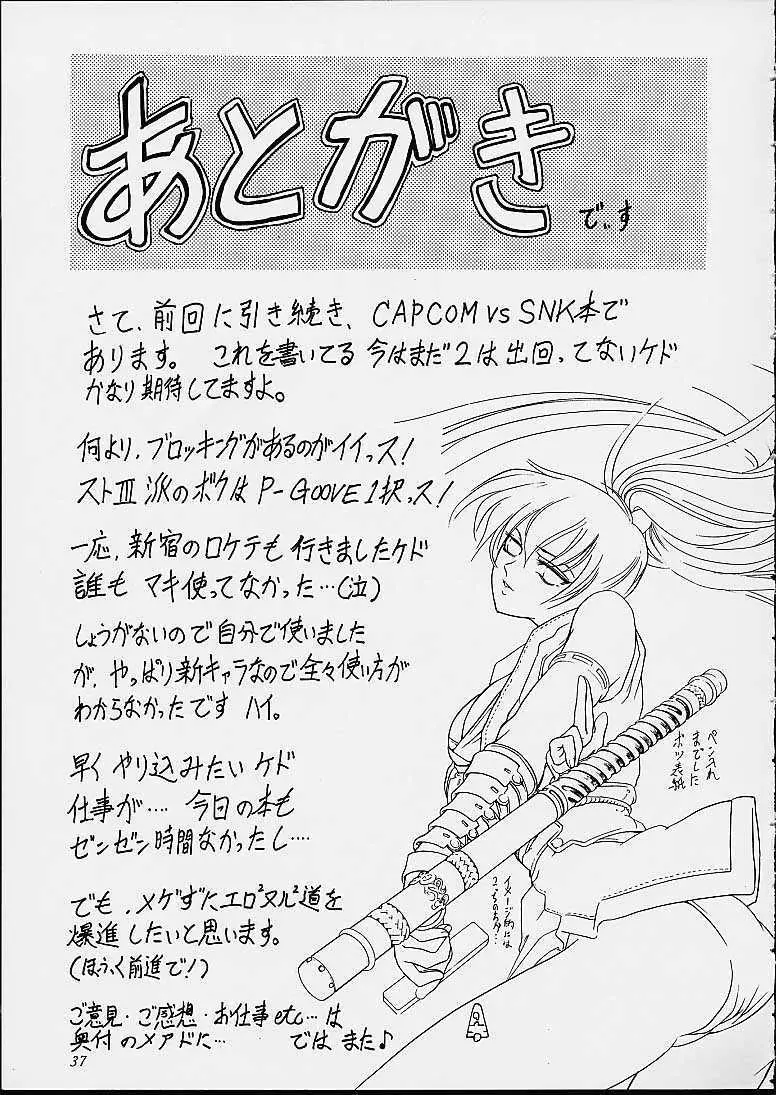 あとがき
でぃす
さて、前回に引き続き、CAPCOM vs SNK本で
あります。 これを書いてる 今はまだ2は出回ってないケド
かなり期待してますよ。
何より、ブロッキングがあるのがイイっス!
ストⅢ派のボクは P-GOOVE1択っス!
一応、新宿のロケテも行きましたケド
誰も マキ使ってなかった…(泣)
しょうがないので自分で使いました
が、やっぱり新キャラなので全々使い方が
わからなかったです ハイ。
早く やり込みたい ケド
仕事が…. 今日の本も
ゼンゼン時間なかったし….
でも、メゲずにエロ²ヌル²道を
爆進したいと思います。
(ほふく前進で!)
ご意見・ご感想・お仕事etc…は
奥付のメアドに… では また♪
ペン入れ
までした
ボツ表紙
イメージ的には
37